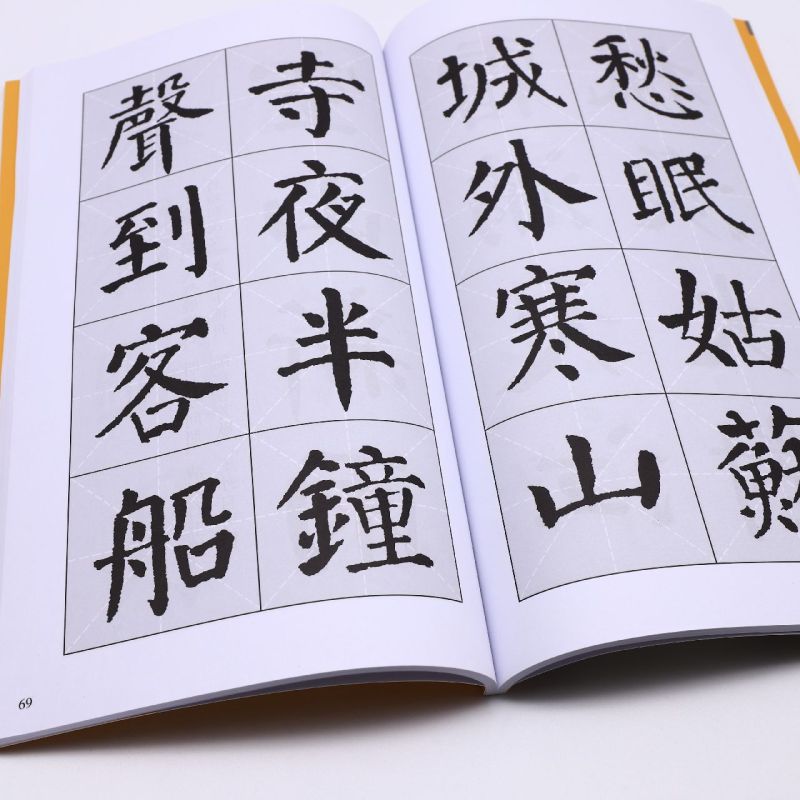 愁眠姑蘇
城外寒山
寺夜半鐘
聲到客船
69